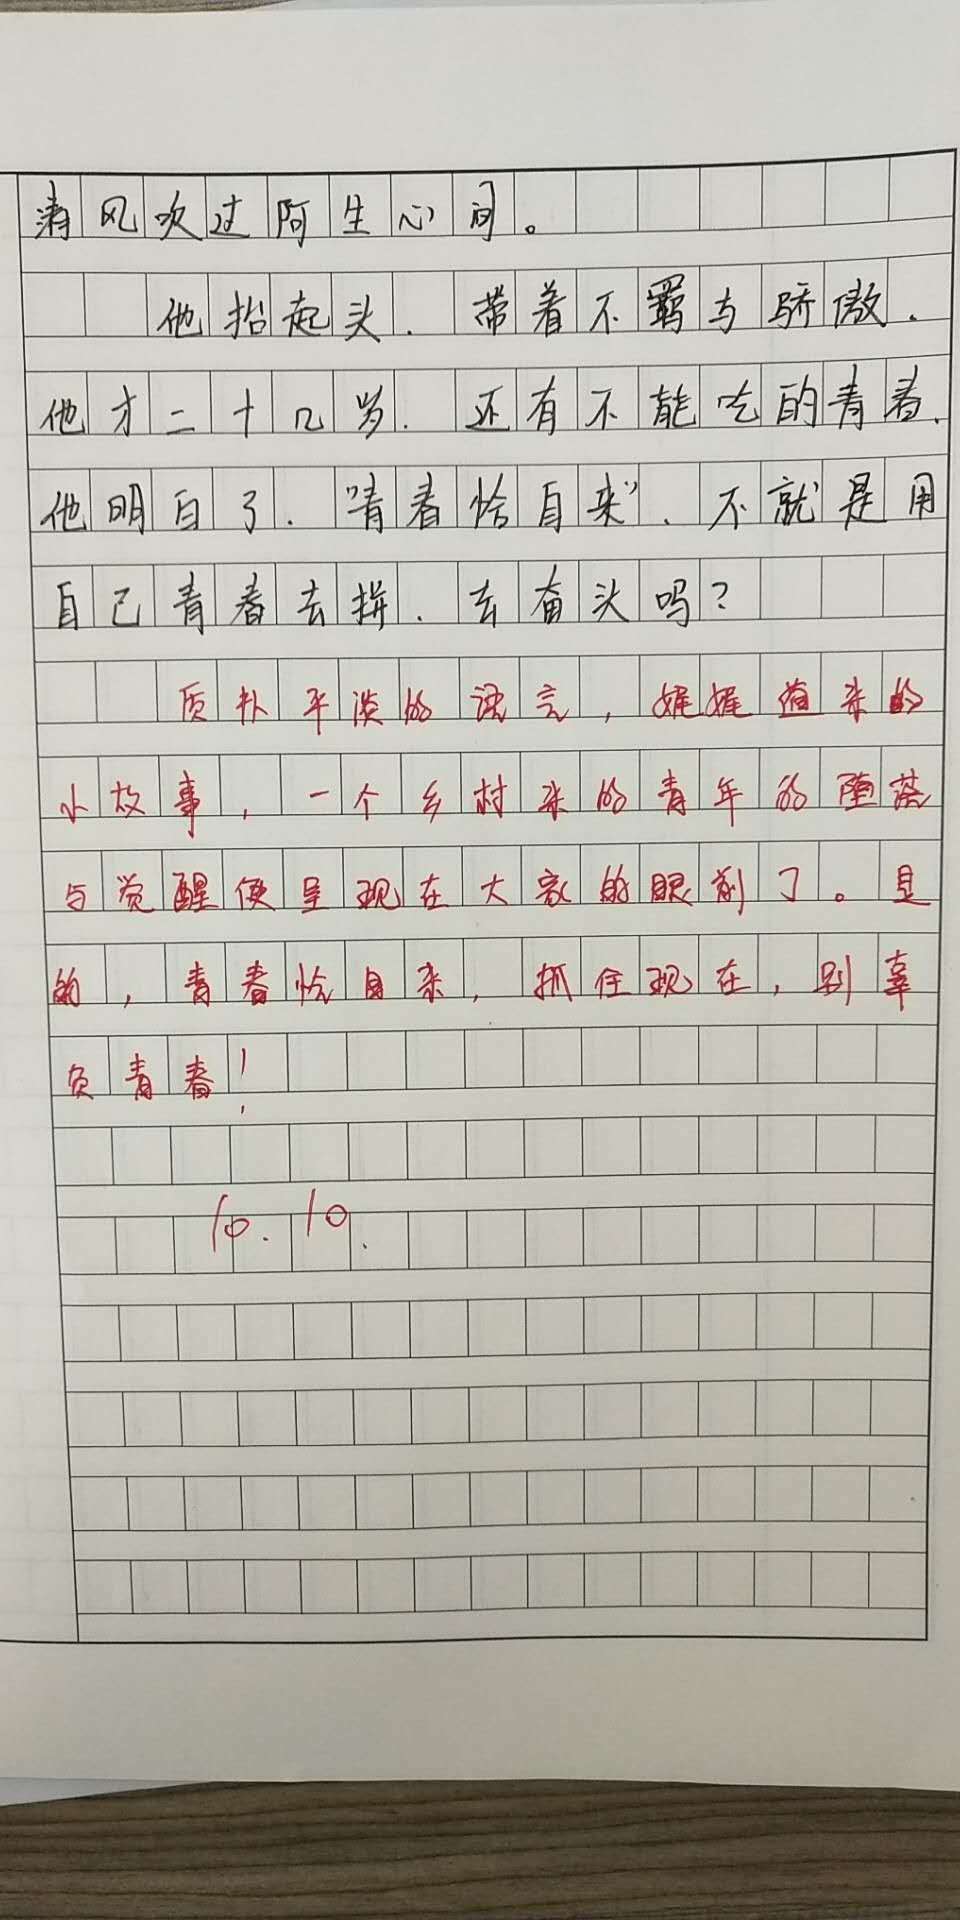 清风吹过阿生心间。
他抬起头.带着不羁与骄傲.
他才二十几岁.还有不能吃的青春.
他明白了.“青春恰自来”.不就是用
自己青春去拼.去奋头吗?
质朴平淡的语言,娓娓道来的
小故事,一个乡村来的青年的堕落
与觉醒便呈现在大家的眼前了。是
的,青春恰自来,抓住现在,别辜
负青春!
10.10.